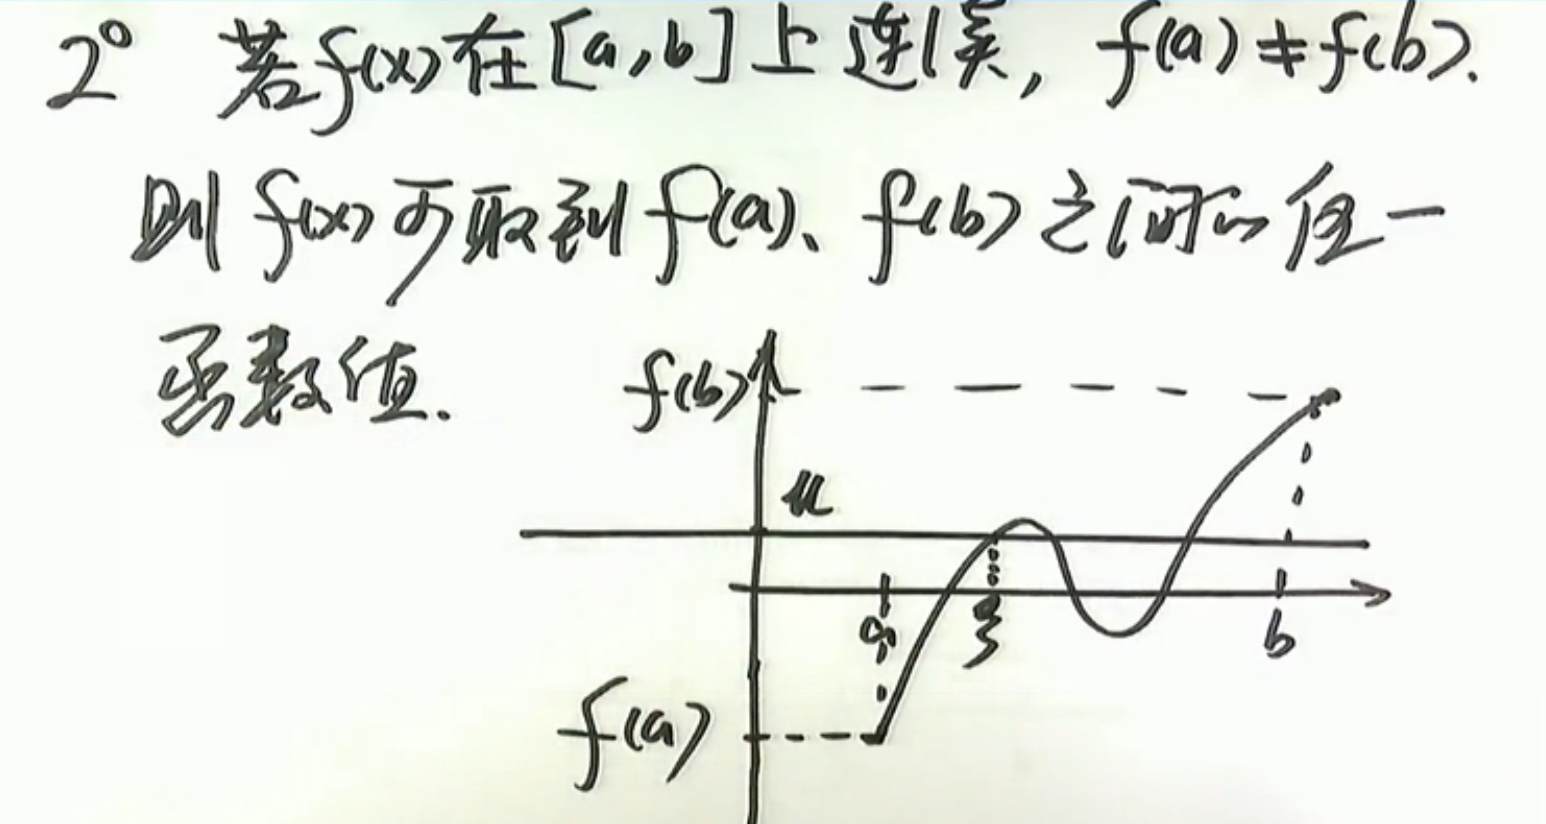 2° 若f(x)在[a,b]上连续, f(a)≠f(b).
则f(x)可取到f(a)、f(b)之间的任一
函数值.
f(b)
μ
a
ξ
b
f(a)